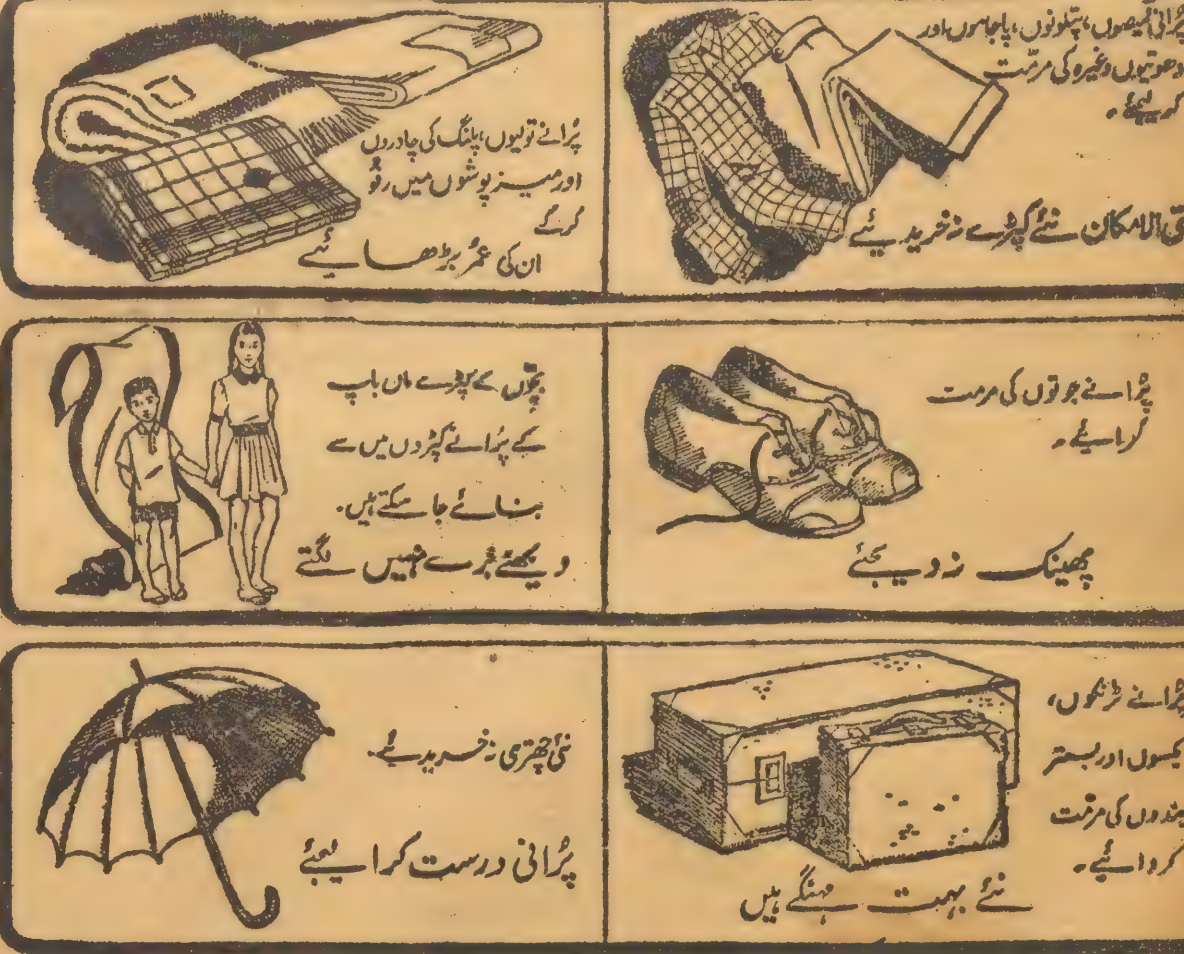 پُرانی قمیصوں، پتلونوں، پاجاموں اور
دھوتیوں وغیرہ کی مرمّت
کر لیجئے۔
حتی الامکان نئے کپڑے نہ خریدیئے
پُرانے تولیوں، پلنگ کی چادروں
اور میز پوشوں میں رفُو
کر کے
ان کی عمُر بڑھائیے
پُرانے جوتوں کی مرمت
کرائیے۔
پھینک نہ دیجئے
بچّوں کے کپڑے ماں باپ
کے پُرانے کپڑوں میں سے
بنائے جا سکتے ہیں۔
دیکھئے بُرے نہیں لگتے
پُرانے ٹرنکوں،
کیسوں اور بستر
بندوں کی مرمّت
کروائیے۔
نئے بہت مہنگے ہیں
نئی چھتری نہ خریدئیے۔
پُرانی درست کرا لیجئے